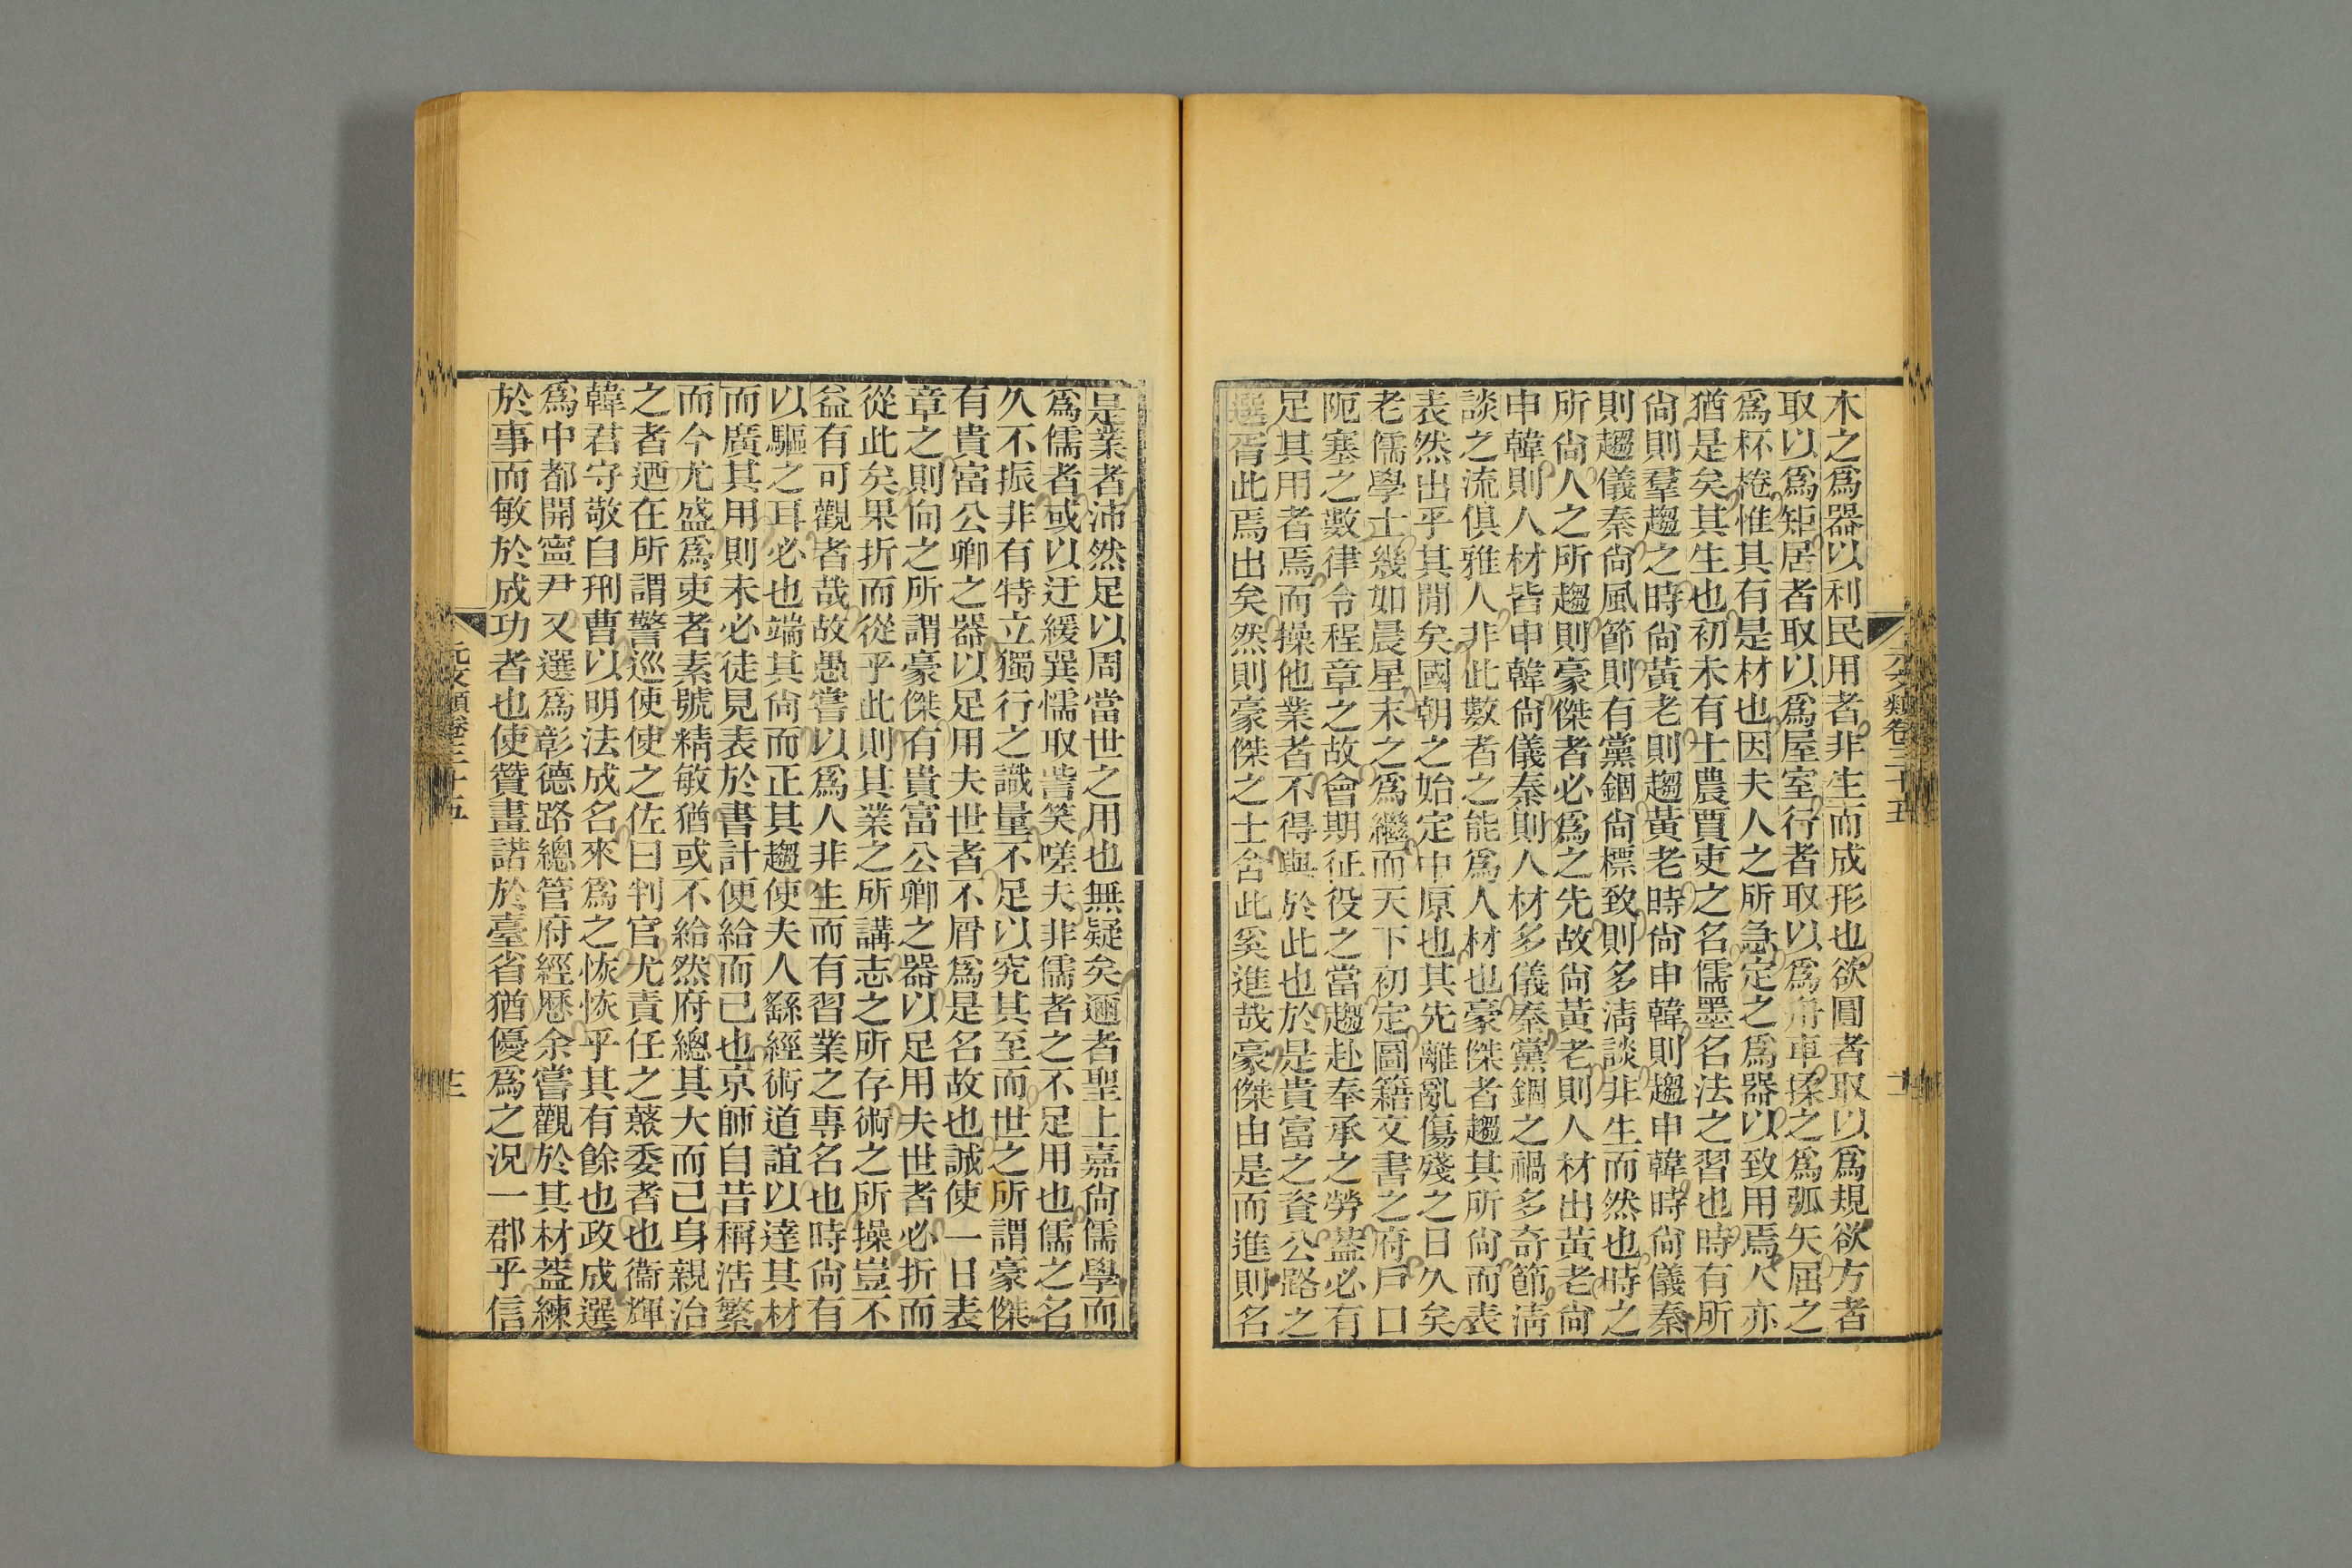 元文類卷三十五
二
木之爲器以利民用者非生而成形也欲圓者取以爲規欲方者
取以爲矩居者取以爲屋室行者取以爲舟車揉之爲弧矢屈之
爲杯棬惟其有是材也因夫人之所急定之爲器以致用焉人亦
猶是矣其生也初未有士農賈吏之名儒墨名法之習也時有所
尙則羣趨之時尙黃老則趨黃老時尙申韓則趨申韓時尙儀秦
則趨儀秦尙風節則有黨錮尙標致則多淸談非生而然也時之
所尙人之所趨則豪傑者必爲之先故尙黃老則人材出黃老尙
申韓則人材皆申韓尙儀秦則人材多儀秦黨錮之禍多奇節淸
談之流俱雅人非此數者之能爲人材也豪傑者趨其所尙而表
表然出乎其閒矣國朝之始定中原也其先離亂傷殘之日久矣
老儒學士幾如晨星末之爲繼而天下初定圖籍文書之府戶口
阨塞之數律令程章之故會期征役之當趨赴奉承之勞葢必有
足其用者焉而操他業者不得與於此也於是貴富之資公路之
選胥此焉出矣然則豪傑之士舍此奚進哉豪傑由是而進則名
是業者沛然足以周當世之用也無疑矣邇者聖上嘉尙儒學而
爲儒者或以迂緩巽懦取訾笑嗟夫非儒者之不足用也儒之名
久不振非有特立獨行之識量不足以究其至而世之所謂豪傑
有貴富公卿之器以足用夫世者不屑爲是名故也誠使一日表
章之則向之所謂豪傑有貴富公卿之器以足用夫世者必折而
從此矣果折而從乎此則其業之所講志之所存術之所操豈不
益有可觀者哉故愚嘗以爲人非生而有習業之專名也時尙有
以驅之耳必也端其尙而正其趨使夫人繇經術道誼以達其材
而廣其用則未必徒見表於書計便給而已也京師自昔稱浩繁
而今尤盛爲吏者素號精敏猶或不給然府總其大而己身親治
之者迺在所謂警巡使使之佐曰判官尤責任之叢委者也衞輝
韓君守敬自刑曹以明法成名來爲之恢恢乎其有餘也政成選
爲中都開寧尹又選爲彰德路總管府經歷余嘗觀於其材葢練
於事而敏於成功者也使贊畫諾於臺省猶優爲之況一郡乎信
元文類卷三十五
三